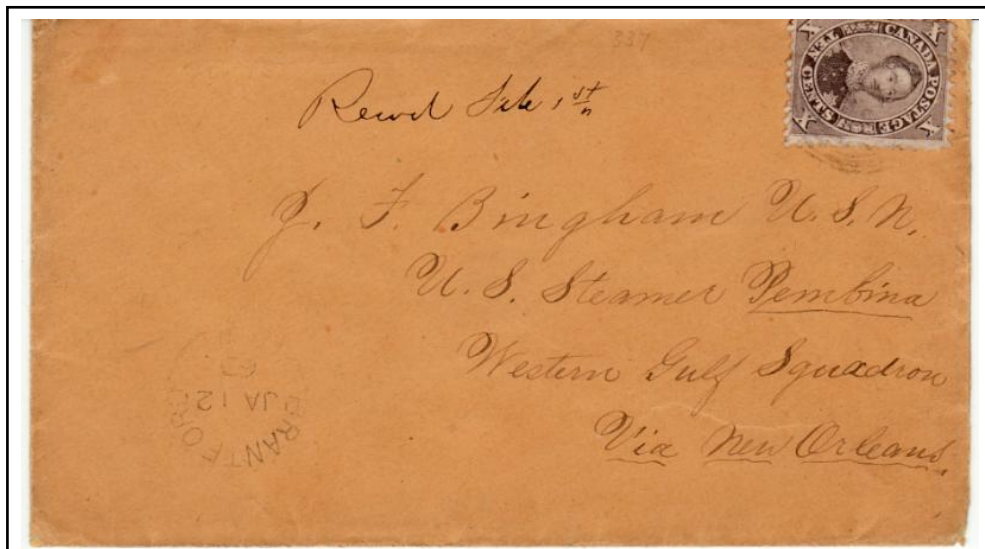 337
CANADA POSTAGE
TEN CENTS
X X X X
Recvd Feb 1st
J. F. Bingham U.S.N.
U.S. Steamer Pembina
Western Gulf Squadron
Via New Orleans.
BRANTFORD
JA 12